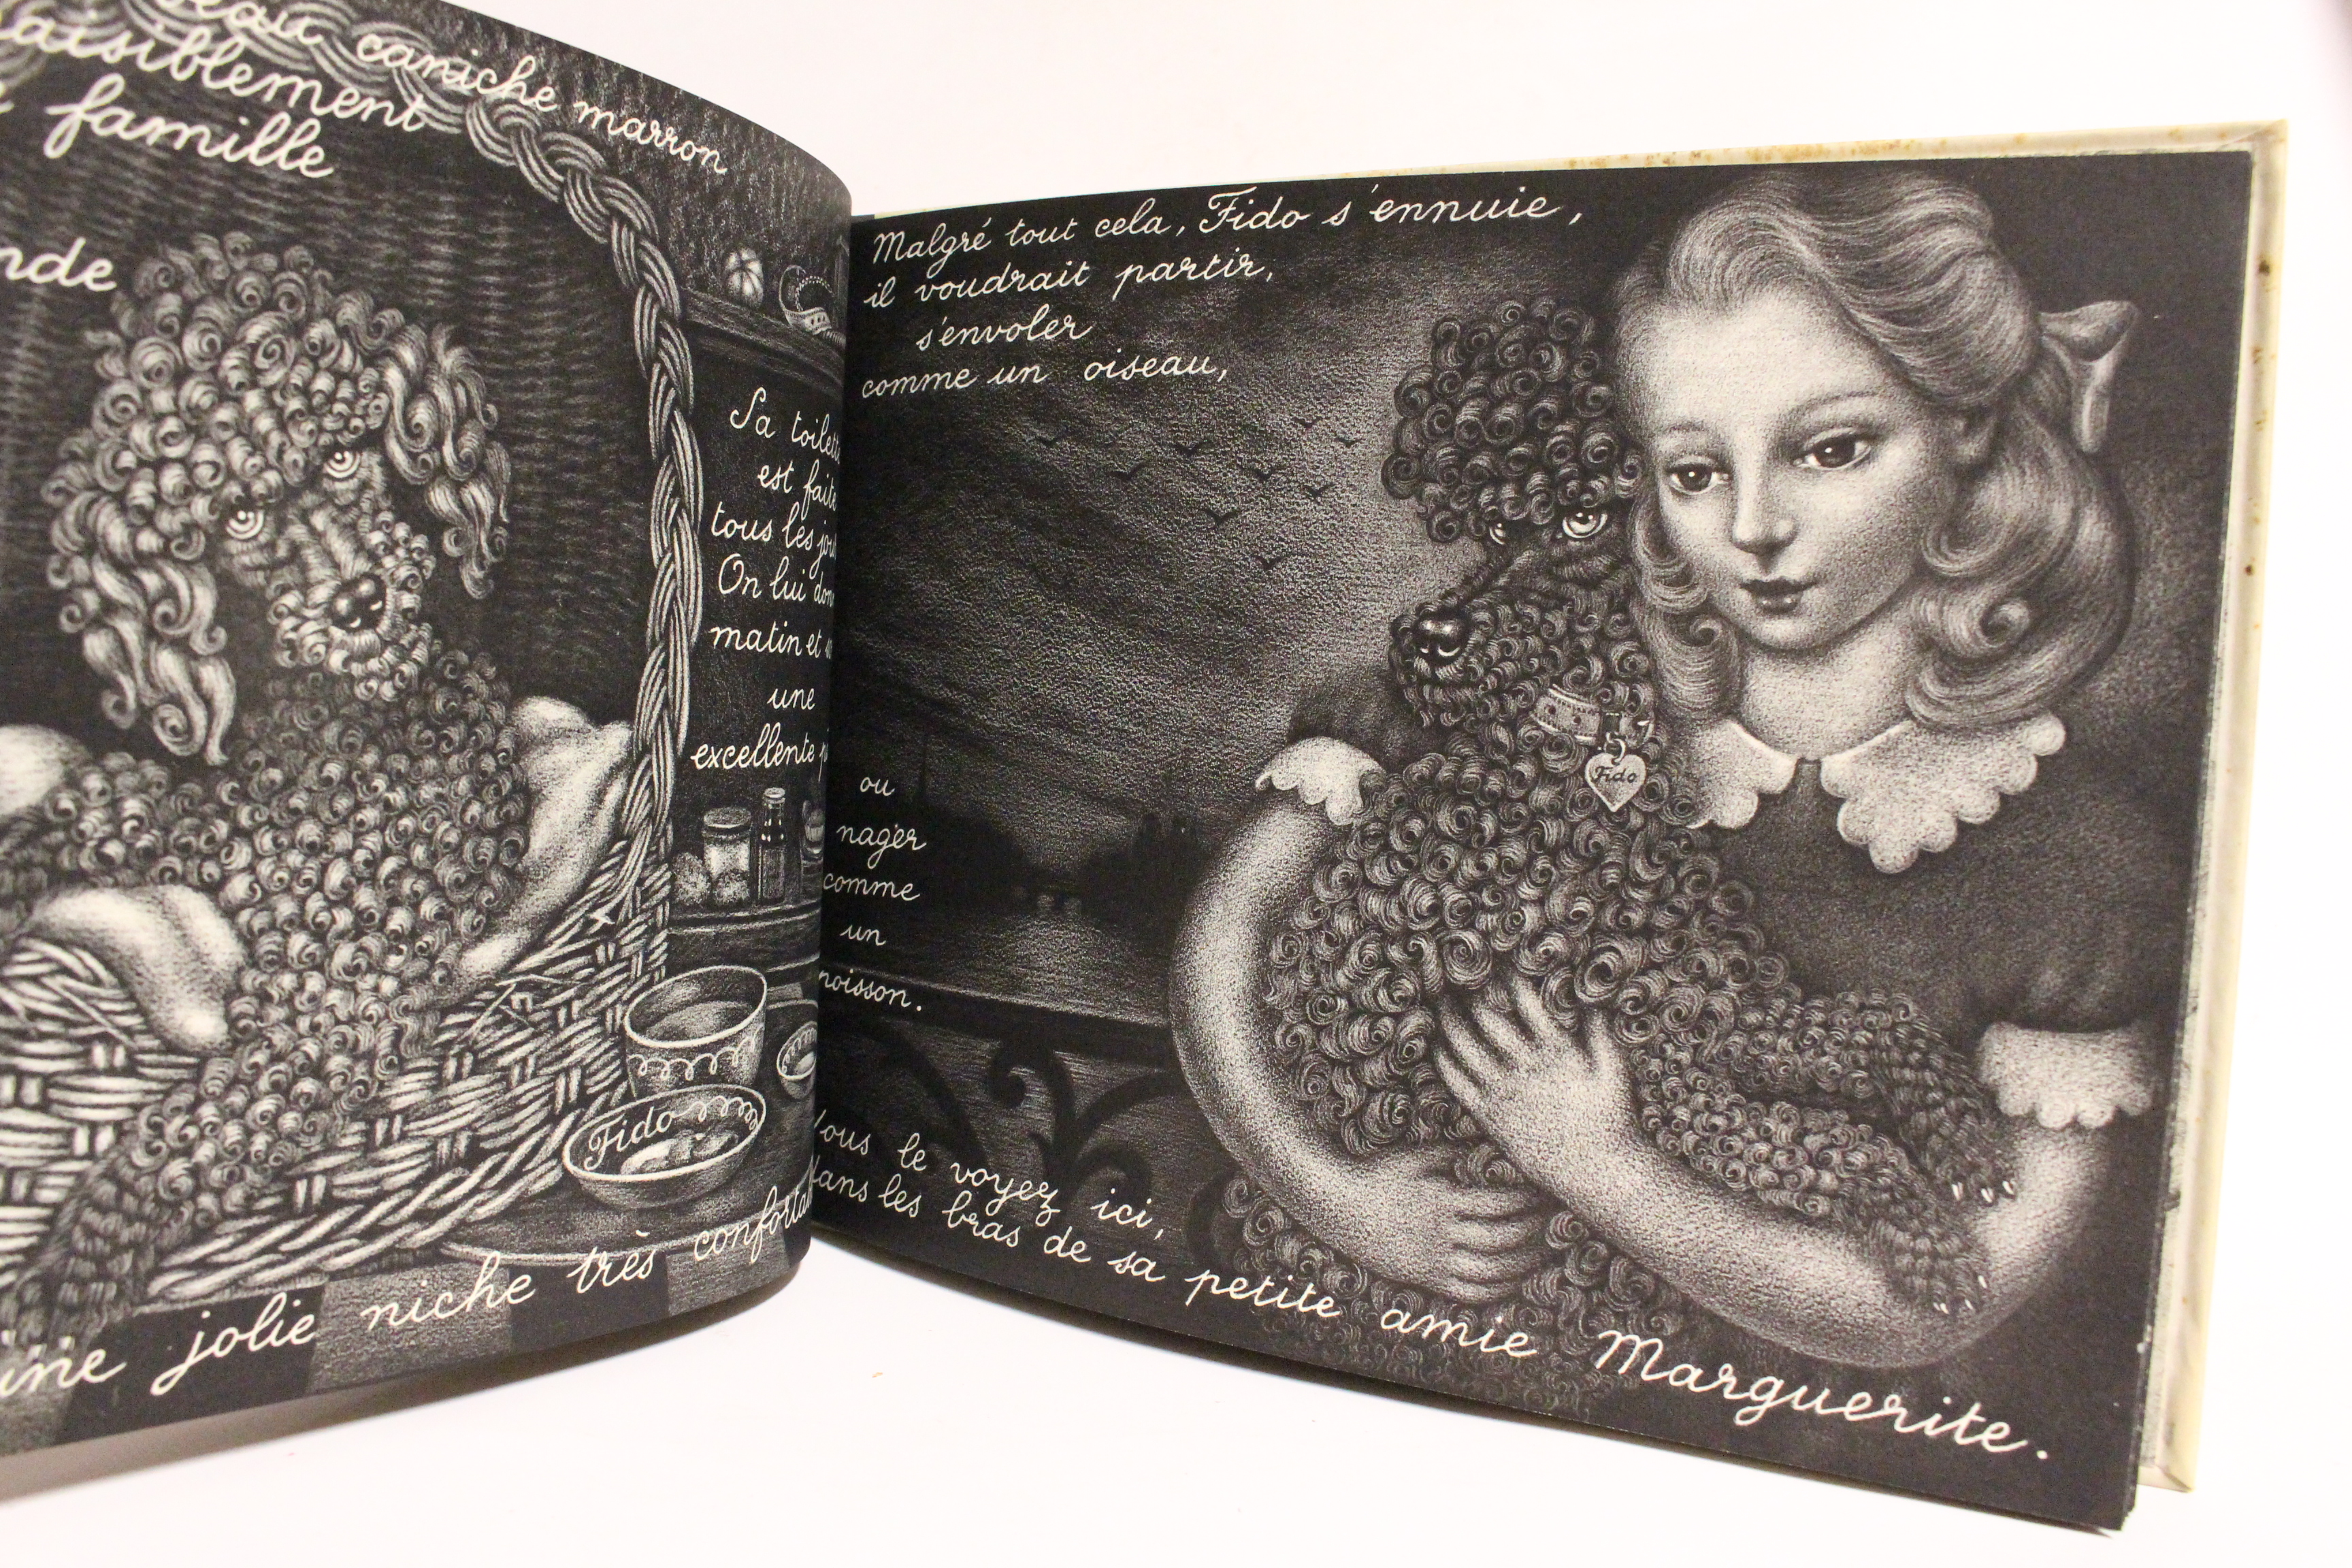 caniche marron
paisiblement
famille
nde
Sa toilett
est faite
tous les jou
On lui don
matin et
une
excellente p
Fido
une jolie niche très confortab
Malgré tout cela, Fido s'ennuie,
il voudrait partir,
s'envoler
comme un oiseau,
ou
nager
comme
un
poisson.
Fido
Vous le voyez ici,
dans les bras de sa petite amie Marguerite.